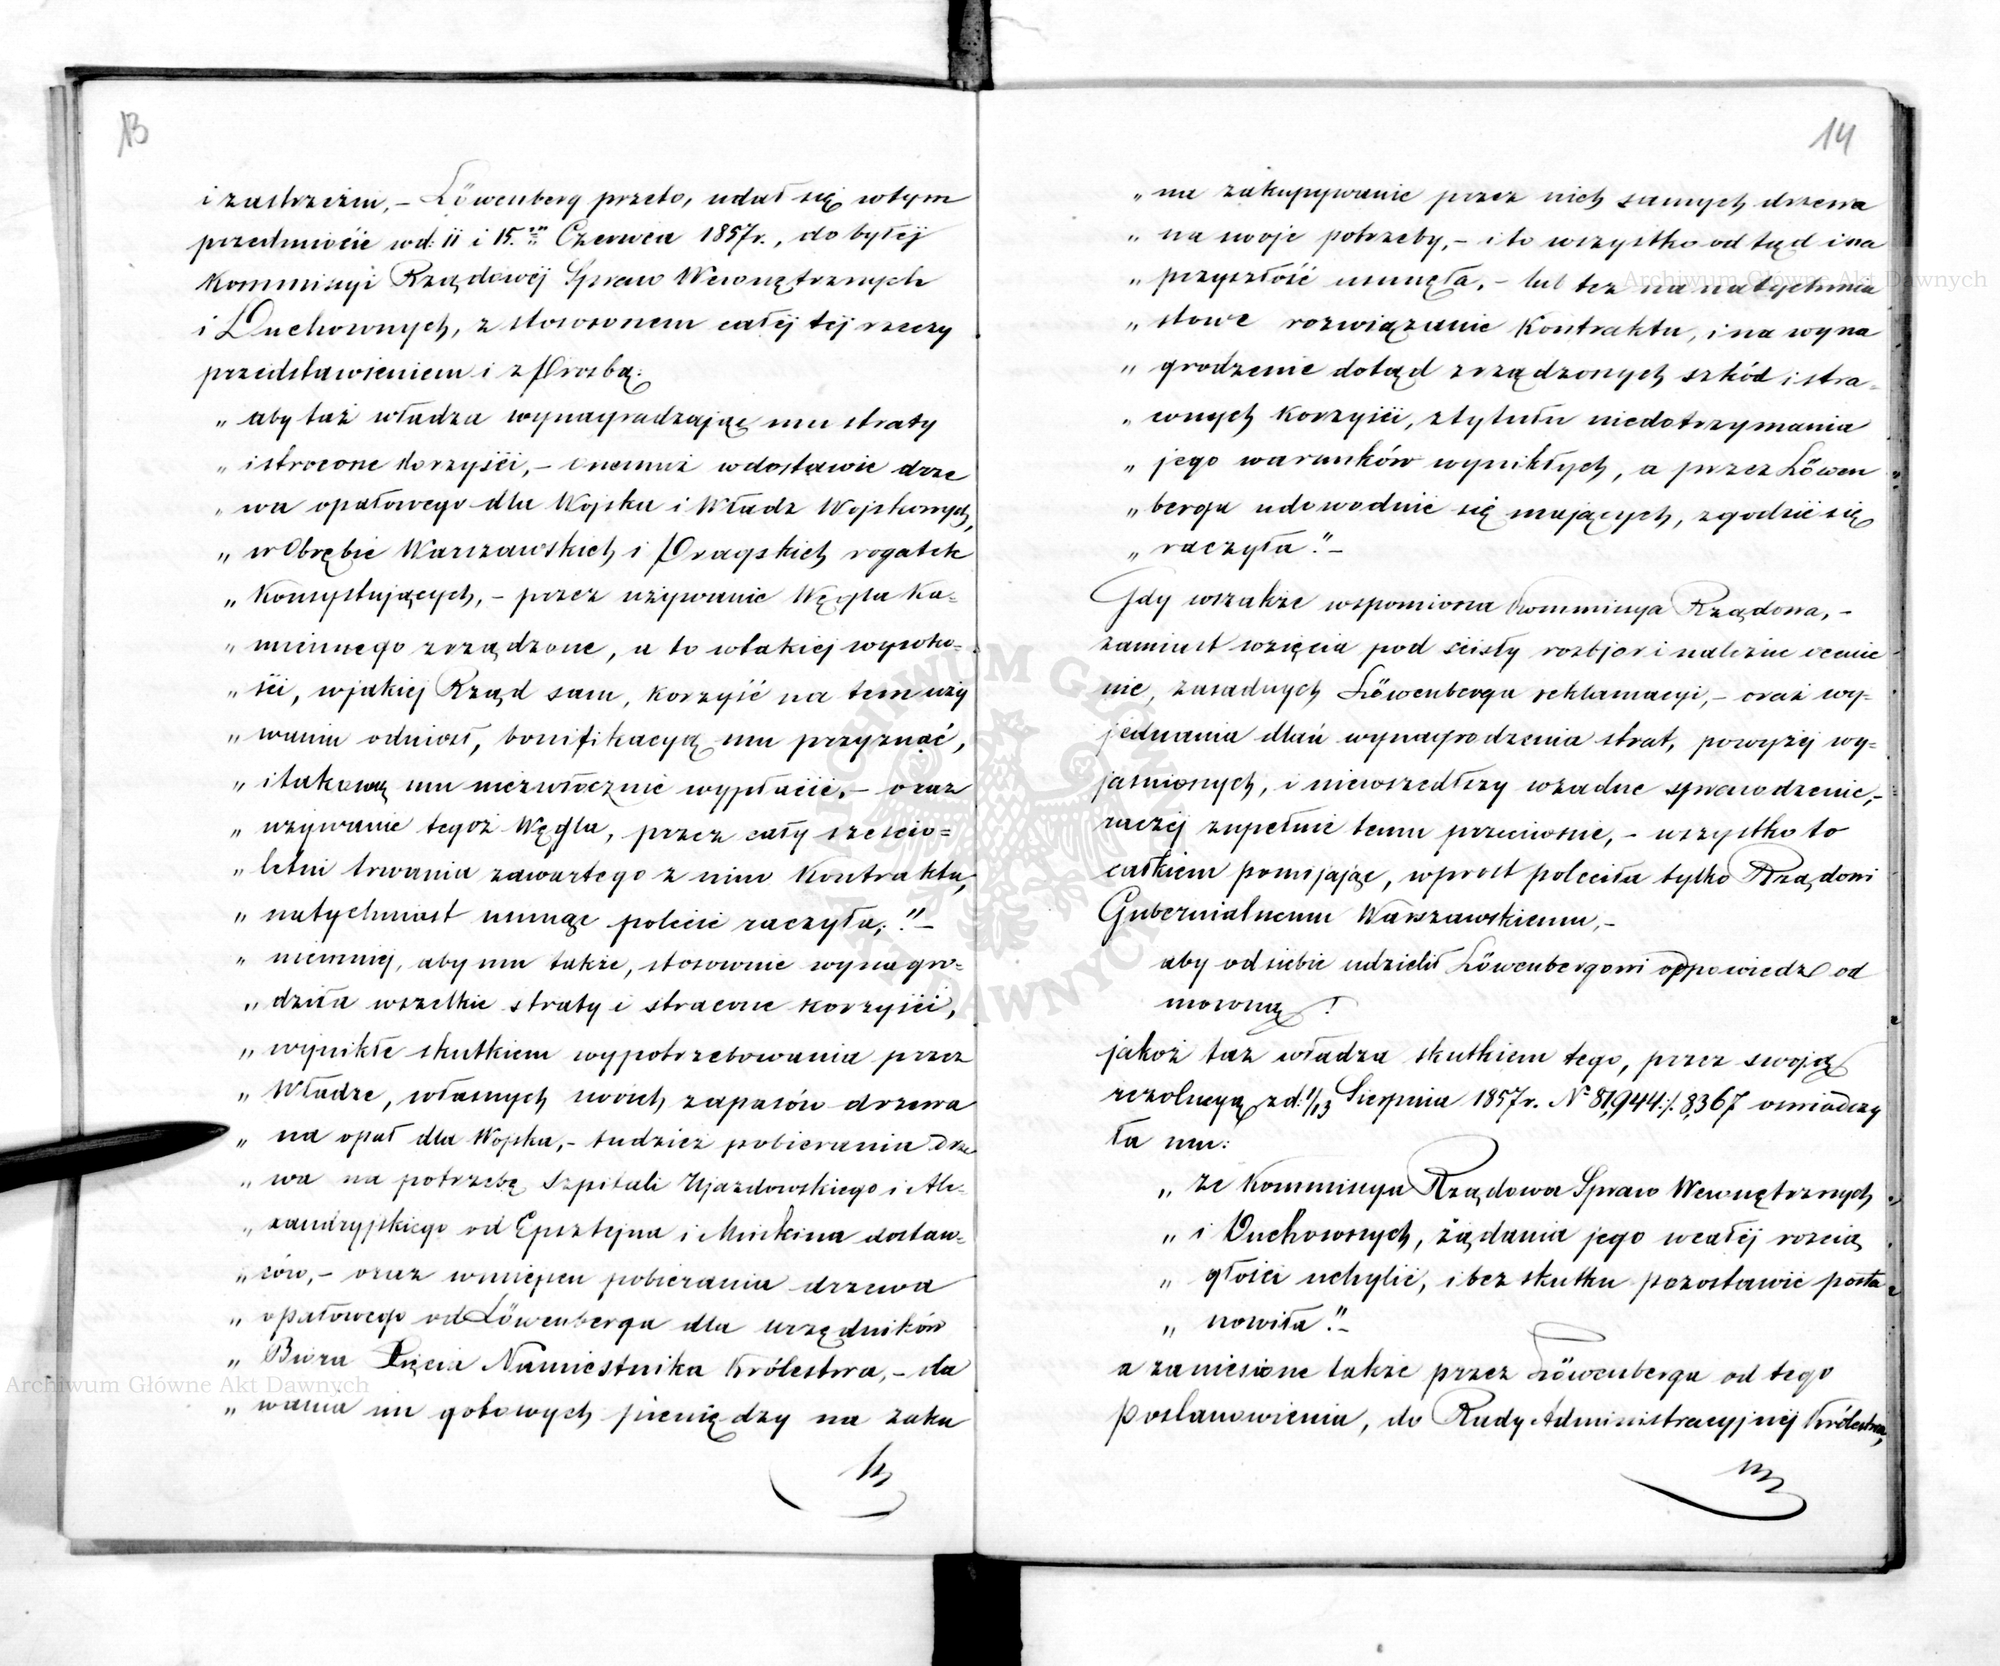 13
i zastrzeżeń, – Löwenberg przeto, udał się w tym
przedmiocie w d: 11 i 15. Czerwca 1857 r., do byłej
Kommisyi Rządowéj Spraw Wewnętrznych
i Duchownych, z stosownem całéj téj rzeczy
przedstawieniem i z Prośbą:
„ aby taż władza wynagradzając mu straty
„ i stracone korzyści, – onemuż w dostawie drze
„ wa opałowego dla Wojska i Władz Wojskowych,
„ w Obrębie Warszawskich i Pragskich rogatek
„ Konsystujących, – przez używanie Węgla Ka=
„ miennego zrządzone, a to w takiej wysoko=
„ ści, w jakiej Rząd sam, korzyść na tem uży
„ waniu odniósł, bonifikacyą mu przyznać,
„ i takową mu niezwłocznie wypłacić, – oraz
„ używanie tegoż Węgla, przez cały sześcio=
„ letni trwania zawartego z nim Kontraktu,
„ natychmiast usunąć polecić raczyła; " –
„ niemniéj, aby mu także, stosownie wynagro=
„ dziła wszelkie straty i stracone korzyści,
„ wynikłe skutkiem wypotrzebowania przez
„ Władze, własnych swoich zapasów drzewa
„ na opał dla Wojska, – tudzież pobierania drze
„ wa na potrzebę Szpitali Ujazdowskiego i Ale=
„ xandryjskiego od Epsztejna i Minkina dostaw=
„ ców, – oraz w miejscu pobierania drzewa
„ opałowego od Löwenberga dla urzędników
„ Biura Xięcia Namiestnika Królestwa, – da
„ wania im gotowych pieniędzy na zaku
14
„ na zakupywanie przez nich samych drzewa
„ na swoje potrzeby, – i to wszystko od tąd i na
„ przyszłość usunęła, – lub też na natychmia
„ stowe rozwiązanie Kontraktu, i na wyna
„ grodzenie dotąd zrządzonych szkód i stra=
„ conych korzyści, z tytułu niedotrzymania
„ jego warunków wynikłych, a przez Löwen
„ berga udowodnić się mających, zgodzić się
„ raczyła." –
Gdy wszakże wspomniona Kommisya Rządowa, –
zamiast wzięcia pod ścisły rozbjor i należne ocenie
nie, zasadnych Löwenberga reklamacyi, – oraz wy=
jednania dlań wynagrodzenia strat, powyżéj wy=
jaśnionych, i niewszedłszy w żadne sprawdzenie, –
raczéj zupełnie temu przeciwnie, – wszystko to
całkiem pomijając, wprost poleciła tylko Rządowi
Gubernialnemu Warszawskiemu, –
aby od siebie udzielił Löwenbergowi odpowiedź od
mowną!
jakoż taż władza skutkiem tego, przez swoją
rezolucyą z d. 1/13 Sierpnia 1857 r. N 81,944 ./. 8,367 oświadczy
ła mu:
„ że Kommisya Rządowa Spraw Wewnętrznych
„ i Duchownych, żądania jego w całéj rozcią
„ głości uchylić, i bez skutku pozostawić posta
„ nowiła." –
a zaniesione także przez Löwenberga od tego
postanowienia, do Rady Administracyjnéj Królestwa,
Archiwum Główne Akt Dawnych
Archiwum Główne Akt Dawnych
ARCHIWUM GŁÓWNE AKT DAWNYCH